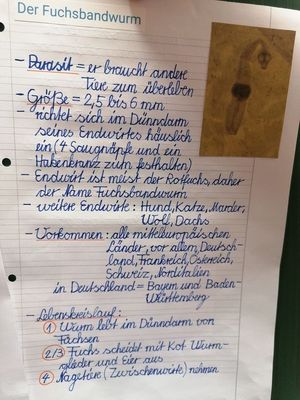 Der Fuchsbandwurm
- Parasit = er braucht andere
Tiere zum überleben
- Größe = 2,5 bis 6 mm
- richtet sich im Dünndarm
seines Endwirtes häuslich
ein (4 Saugnäpfe und ein
Hakenkranz zum festhalten)
- Endwirt ist meist der Rotfuchs, daher
der Name Fuchsbandwurm
- weitere Endwirte: Hund, Katze, Marder,
Wolf, Dachs
- Vorkommen: alle mitteleuropäischen
Länder, vor allem Deutsch-
land, Frankreich, Östereich,
Schweiz, Norditalien
in Deutschland = Bayern und Baden
Württemberg
- Lebenskreislauf:
1 Wurm lebt im Dünndarm von
Füchsen
2/3 Fuchs scheidet mit Kot Wurm-
glieder und Eier aus
4 Nagetiere (Zwischenwirte) nehmen